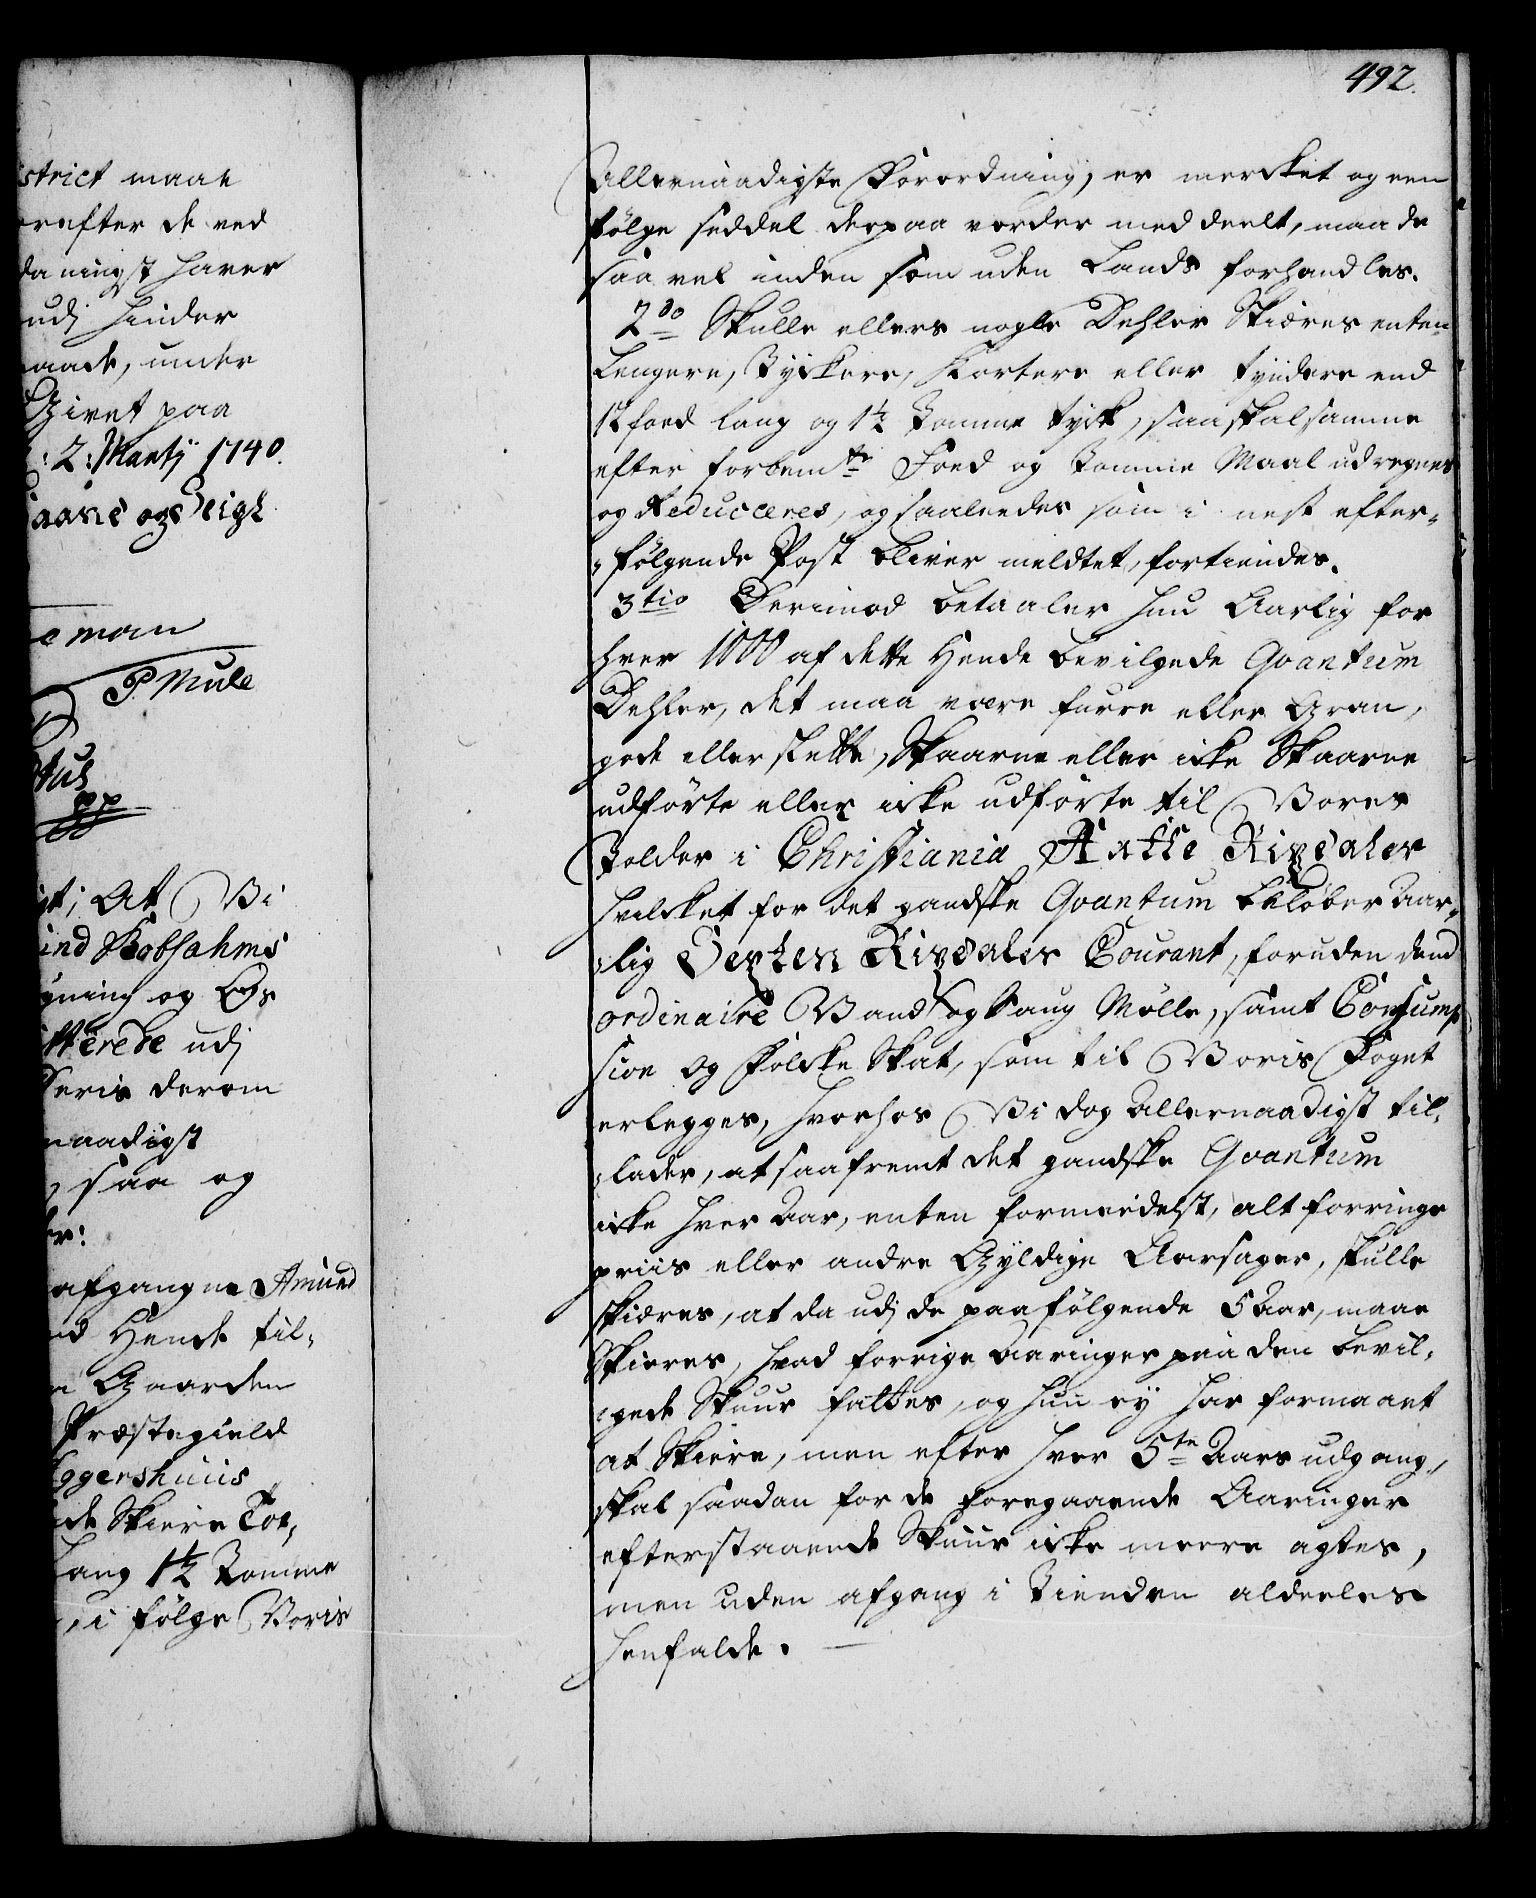 strict maae
erefter de ved
da ningst haver
udj hinder
maade, under
Givet paa
: 2: Martij 1740.
e man
P. Mule
tus
pp
At Vi
ind Kobsahms
gning og Os
itterede udj
Ceris derom
naadigst
, saa og
er:
afgangne Amund
nd Hende til-
n Gaarden
Præstegield
Aggershuus
nde Skiere Tol,
Lang 1½ Tomme
, i følge Voris
492.
Allernaadigste Forordning, er mercket og een
følge seddel derpaa vorder med deelt, maa de
saa vel inden som uden Lands forhandles.
2do Skulle ellers nogle Dehler Skiæres enten
Lengere, Tyckere, Kortere eller tyndere end
12 foed lang og 1½ Tomme tyck, saa skal samme
efter forbemte Foed og Tomme Maal udregnes
og Reduceres, og saaleedes som i nest efter-
følgende Post bliver meldtet, fortiendes.
3tio Derimod betaaler hun Aarlig for
hver 1000 af dette Hende bevilgede Qvantum
Dehler, det maa være furre eller Gran,
gode eller slette, Skaarne eller icke Skaarne
udførte eller icke udførte til Vores
Tolder i Christiania Aatte Rixdaler
hvilcket for det gandske Qvantum beløber Aar-
lig Sexten Rixdaler Courant, foruden dend
ordinaire Vand og Saug Mølle, samt Consump
sion og Folcke Skat, som til Voris Foget
erlegges, hvorhos Vi dog Allernaadigst til-
lader, at saafremt det gandske Qvantum
icke hver Aar, enten formedelst, alt forringe
priis eller andre Gyldige Aarsager, skulle
skiæres, at da udj de paafølgende 5 Aar, maae
Skieres, hvad forrige Aaringer paa den bevil-
gede Skuur fattes, og hun ey har formaaet
at Skiere, men efter hver 5te Aars udgang,
skal saadan for de foregaaende Aaringer
efterstaaende Skuur icke meere agtes,
men uden afgang i Tienden aldeeles
henfalde.